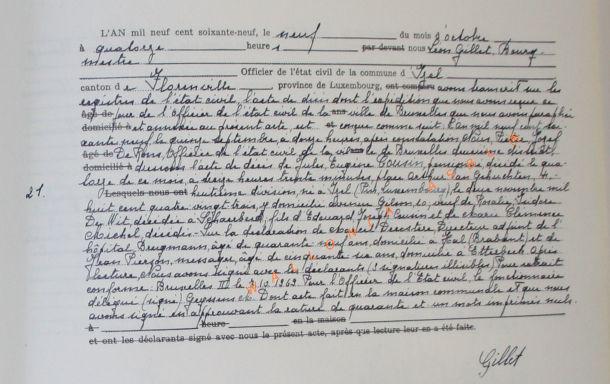 L'AN mil neuf cent soixante-neuf, le neuf du mois d'octobre
à quatorze heures par devant nous Léon Gillet, Bourg-
mestre
Officier de l'état civil de la commune d'Izel
canton de Florenville, province de Luxembourg, ont comparu avons transcrit sur les
registres de l'état civil, l'acte de décès dont l'expédition que nous avons reçue ce
âgé de jour de l'Officier de l'état civil de la ans ville de Bruxelles que nous avons paraphé
domicilié à et annexée au présent acte, est et conçue comme suit: L'an mil neuf cent soi-
xante neuf, le quinze septembre, à douze heures, après constatation, Nous,
âgé de De Pons, Officier de l'état civil de la ville ans de Bruxelles deuxième district
domicilié à dressons l'acte de décès de Jules, Eugène COUSIN, pensionné, décédé le qua-
torze de ce mois à treize heures trente minutes, place Arthur Van Gehuchten, 4,
21.
Lesquels nous ont huitième division, né à Izel (Pro. Luxembourg), le deux novembre mil
huit cent quatre vingt treize, y domicilié avenue 10, veuf de Rosalie, Isidore
De Wit, décédée à Schaerbeek, fils d'Edouard Joseph Cousin et de Marie Clémence
Michel, décédés. Sur la déclaration de Directeur adjoint de l'
hôpital Brugmann, âgé de quarante neuf ans, domicilié à (Brabant), et de
Jean Pierson, messager, âgé de cinquante six ans, domicilié à Etterbeek. Après
lecture, Nous avons signé avec les déclarants (3 signatures illisibles) Pour extrait
conforme: Bruxelles III le 10. 1969 Pour l'Officier de l'Etat civil, le fonctionnaire
délégué, (signé) Dont acte fait en la maison communale et que nous
avons signé en approuvant la rature de quarante et un mots imprimés nuls.
à heure en la maison
et ont les déclarants signé avec nous le présent acte, après que lecture leur en a été faite.
Gillet